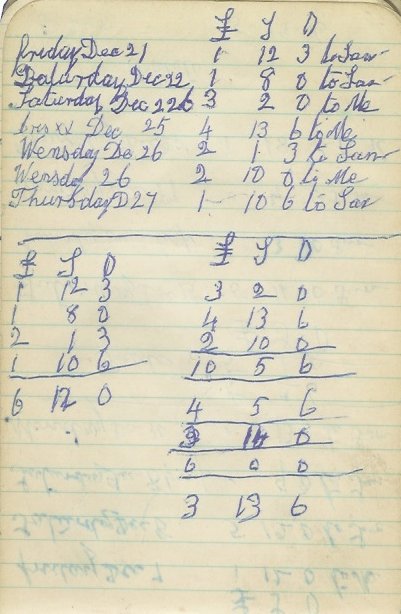 £ S D
Friday Dec 21 1 12 3 to San
Saturday Dec 22 1 8 0 to San
Saturday Dec 22 3 2 0 to Me
Dec 25 4 13 6 to Me
Wensday De 26 2 1 3 to San
Wensday 26 2 10 0 to Me
Thursday D27 1 10 6 to San
£ S D
1 12 3
1 8 0
2 1 3
1 10 6
6 12 0
£ S D
3 2 0
4 13 6
2 10 0
10 5 6
4 5 6
14 0
6 0 0
3 13 6